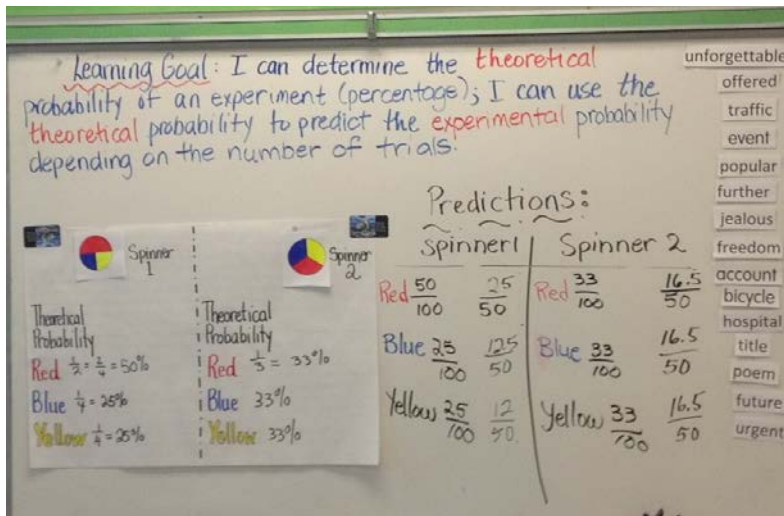 Learning Goal: I can determine the theoretical
probability of an experiment (percentage); I can use the
theoretical probability to predict the experimental probability
depending on the number of trials.
Spinner 1
Theoretical
Probability
Red 1/2 = 2/4 = 50%
Blue 1/4 = 25%
Yellow 1/4 = 25%
Spinner 2
Theoretical
Probability
Red 1/3 = 33%
Blue 33%
Yellow 33%
Predictions:
Spinner 1
Red 50/100 25/50
Blue 25/100 125/50
Yellow 25/100 12/50
Spinner 2
Red 33/100 16.5/50
Blue 33/100 16.5/50
Yellow 33/100 16.5/50
unforgettable
offered
traffic
event
popular
further
jealous
freedom
account
bicycle
hospital
title
poem
future
urgent